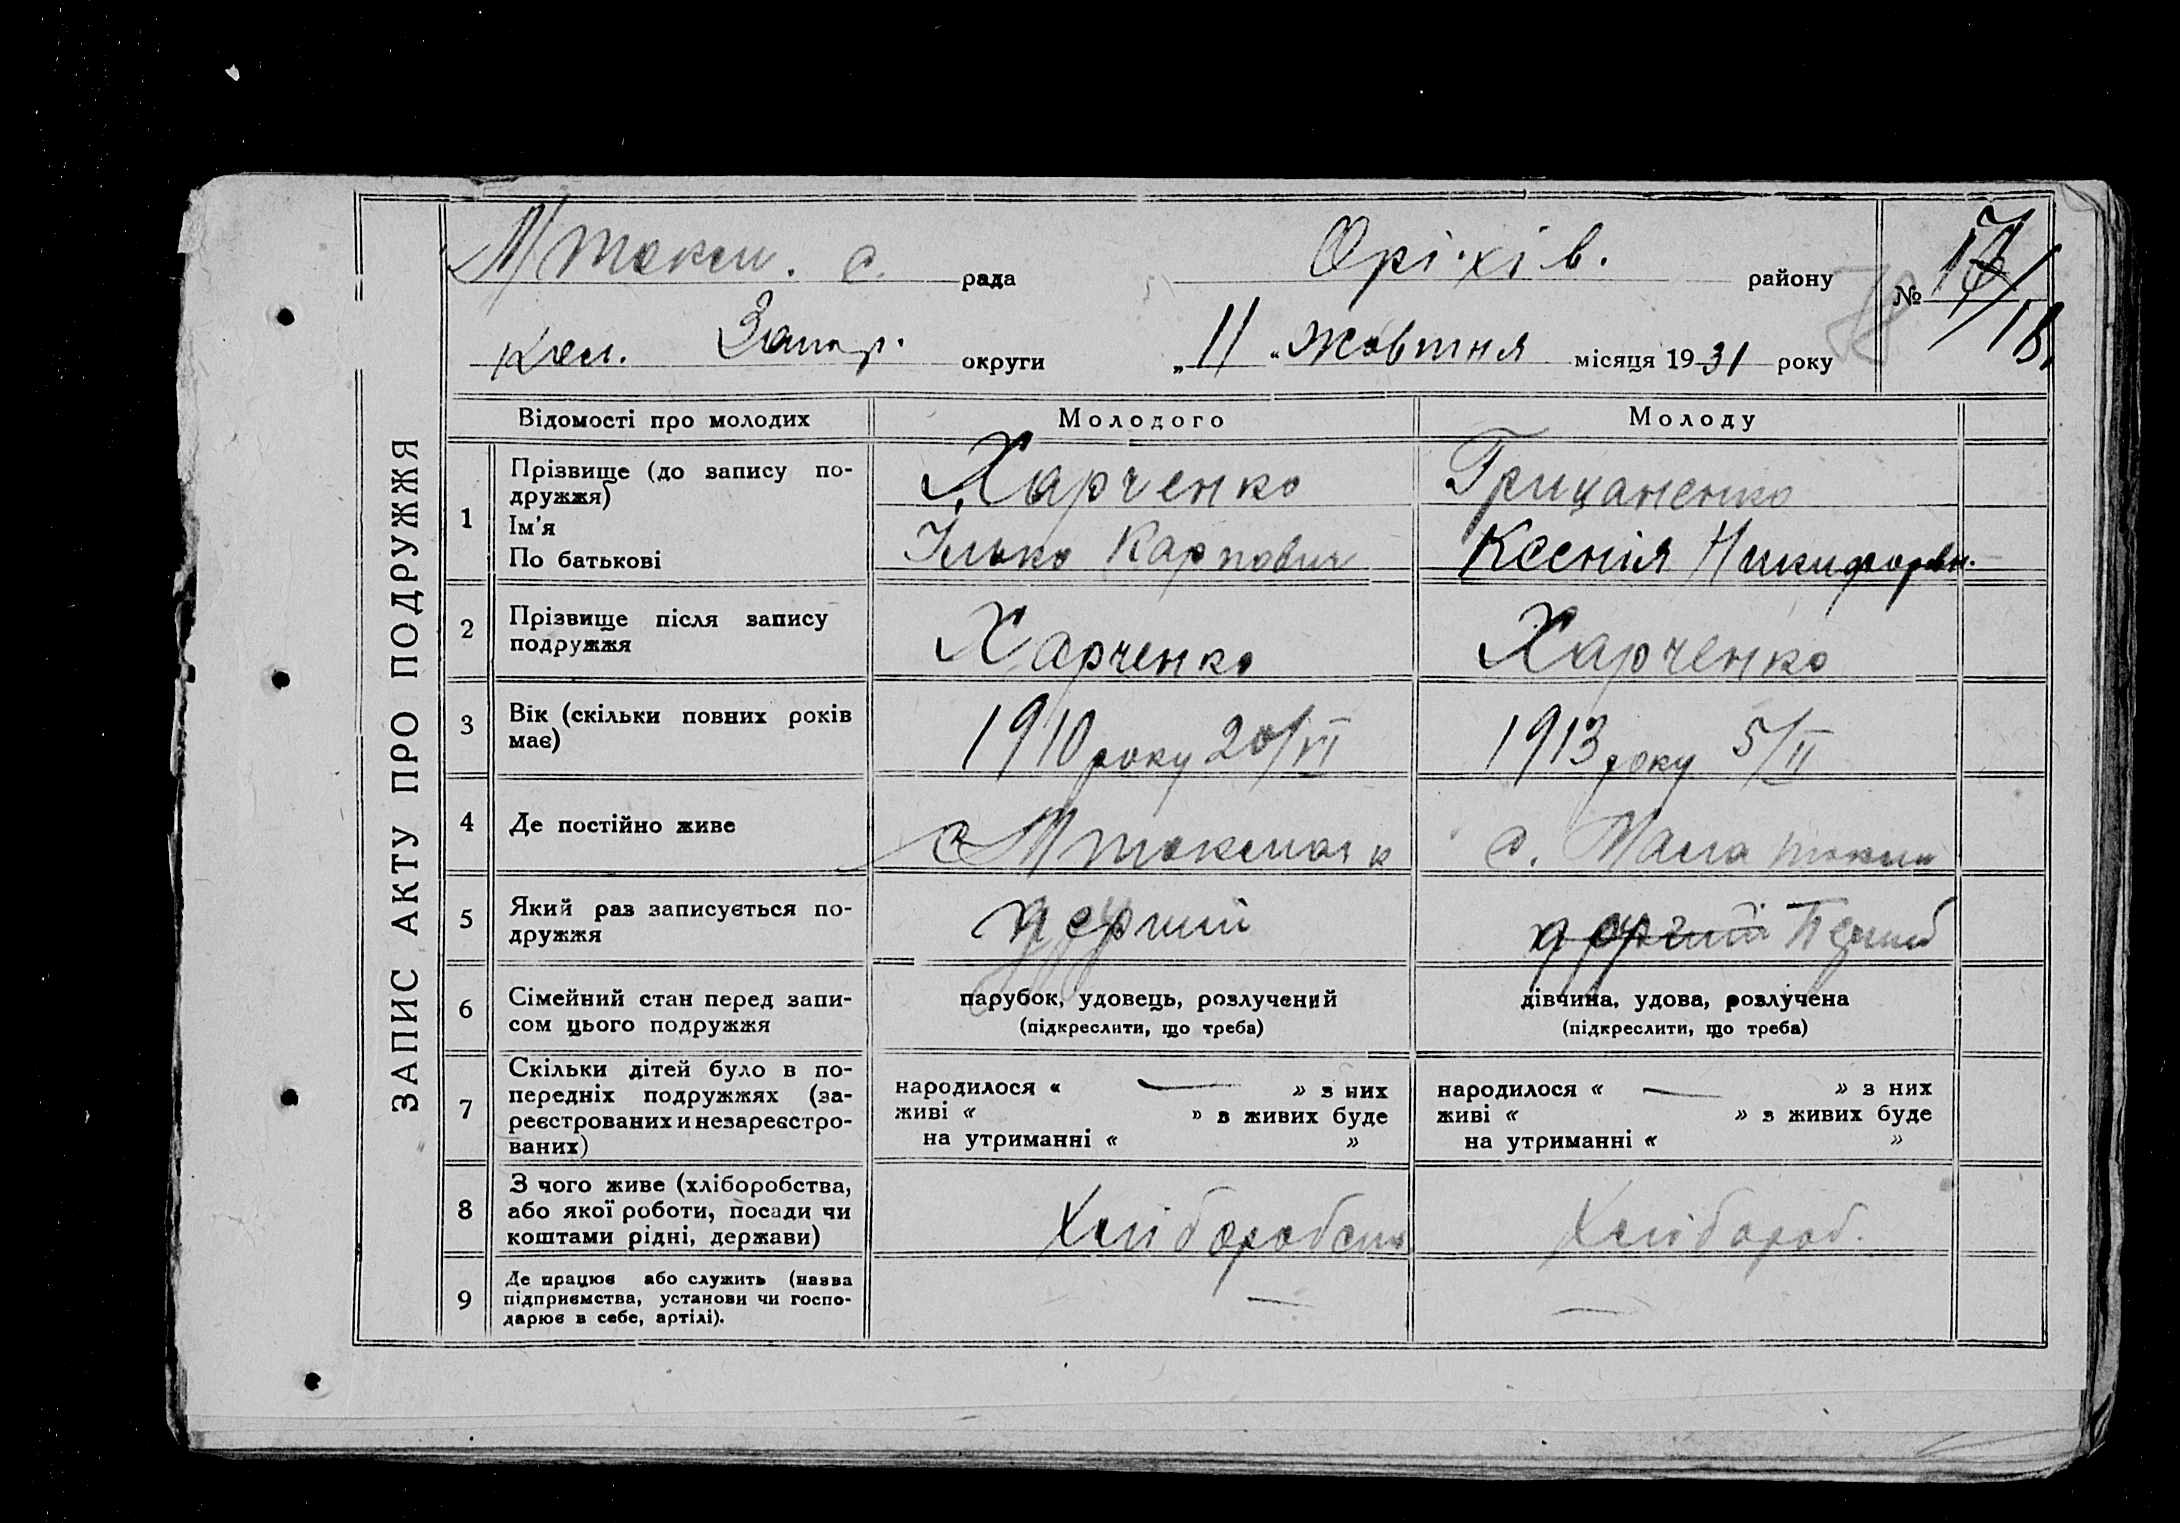 ЗАПИС АКТУ ПРО ПОДРУЖЖЯ
М/токм. с. рада Оріхів. району №
кол. Запор. округи „ 11 " Жовтня місяця 19 31 року
Відомості про молодих Молодого Молоду
1 Прізвище (до запису по-
дружжя)
Ім'я
По батькові
Харченко
Ілько Карпович
Грицаненко
Ксенія Никифоровн.
2 Прізвище після запису
подружжя
Харченко Харченко
3 Вік (скільки повних років
має)
1910 року 20/VI 1913 року 5/II
4 Де постійно живе
с М токмачк с. Мала токм
5 Який раз записується по-
дружжя
перший другий Перший
6 Сімейний стан перед запи-
сом цього подружжя
парубок, удовець, розлучений
(підкреслити, що треба)
дівчина, удова, розлучена
(підкреслити, що треба)
7 Скільки дітей було в по-
передніх подружжях (за-
реєстрованих и незареєстро-
ваних)
народилося « — » з них
живі « » з живих буде
на утриманні « »
народилося « — » з них
живі « » з живих буде
на утриманні « »
8 З чого живе (хліборобства,
або якої роботи, посади чи
коштами рідні, держави)
Хліборобств Хлібороб.
9 Де працює або служить (назва
підприємства, установи чи госпо-
дарює в себе, артілі).
— —